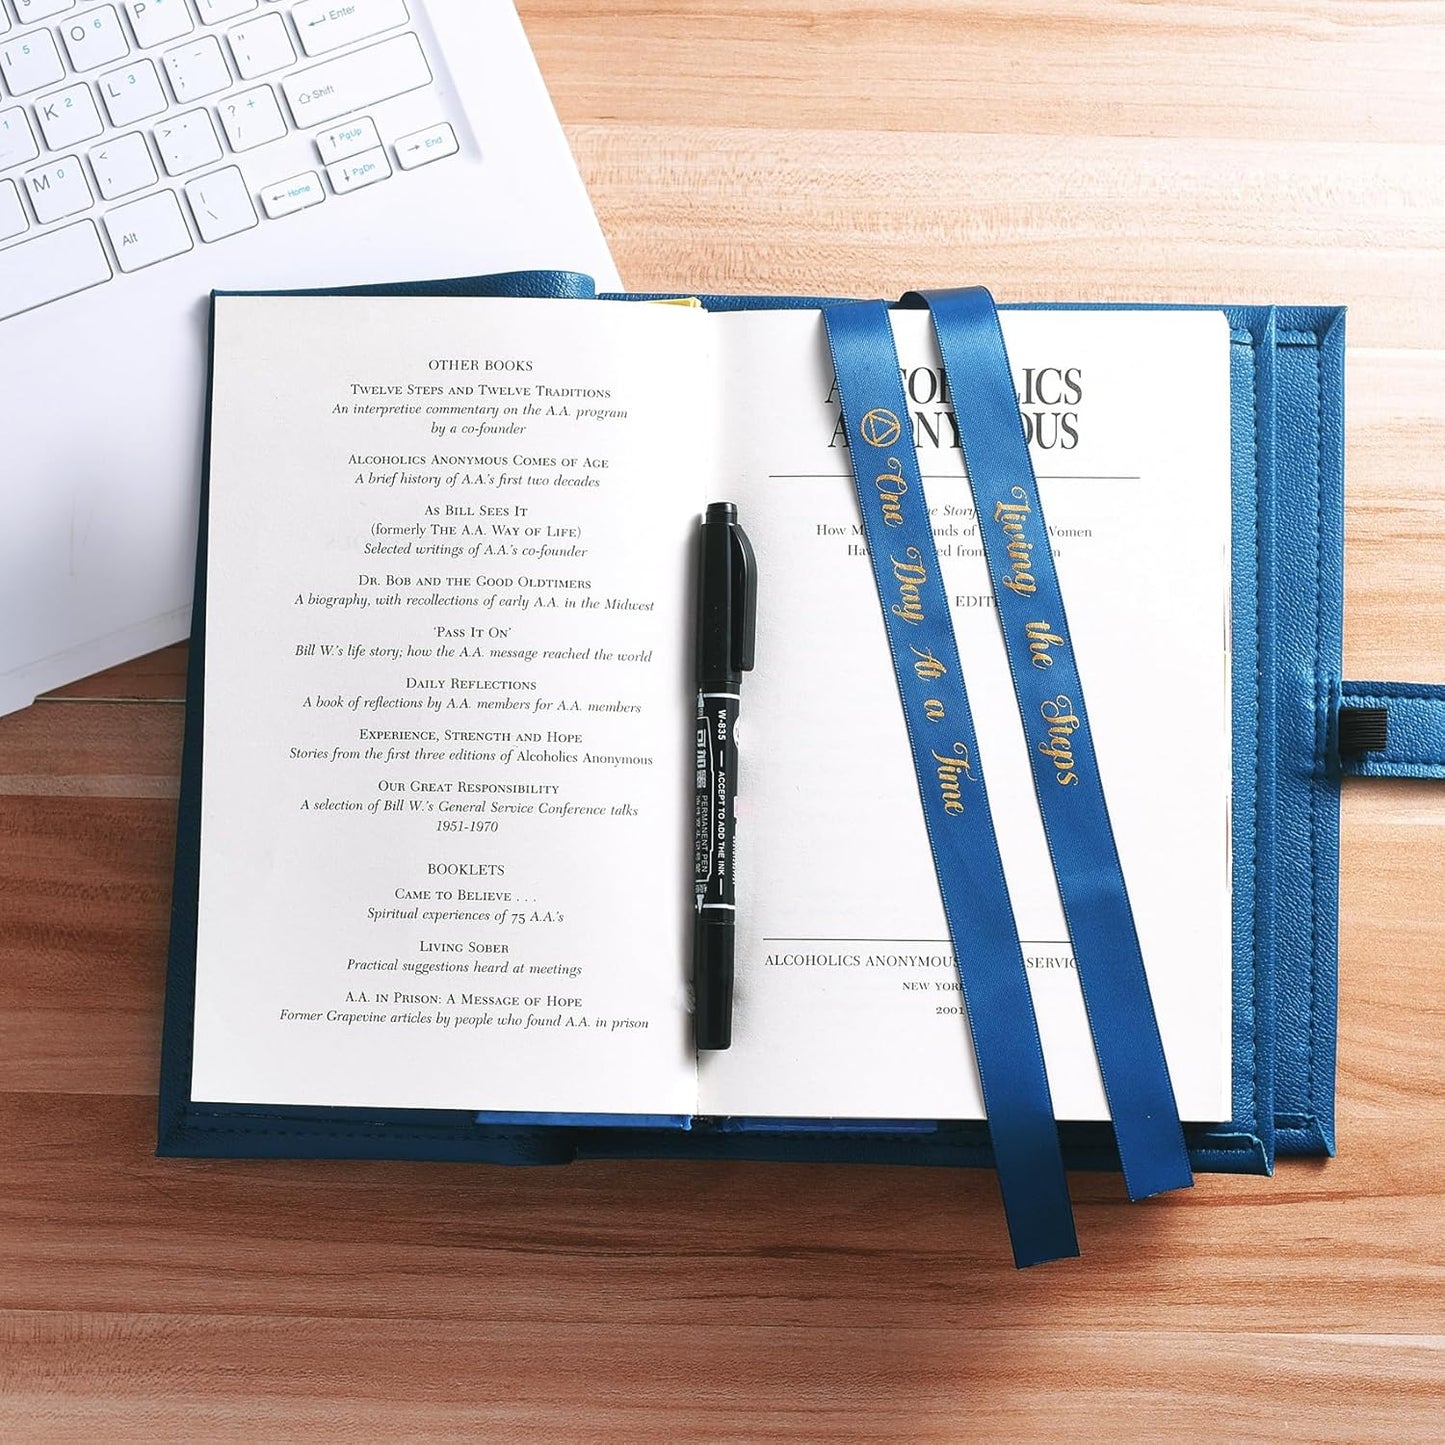 Enter
Shift
PgUp
PgDn
Home
End
Alt
I 5
O 6
P *
K 2
L 3
M 0
OTHER BOOKS
TWELVE STEPS AND TWELVE TRADITIONS
An interpretive commentary on the A.A. program
by a co-founder
ALCOHOLICS ANONYMOUS COMES OF AGE
A brief history of A.A.'s first two decades
AS BILL SEES IT
(formerly THE A.A. WAY OF LIFE)
Selected writings of A.A.'s co-founder
DR. BOB AND THE GOOD OLDTIMERS
A biography, with recollections of early A.A. in the Midwest
'PASS IT ON'
Bill W.'s life story; how the A.A. message reached the world
DAILY REFLECTIONS
A book of reflections by A.A. members for A.A. members
EXPERIENCE, STRENGTH AND HOPE
Stories from the first three editions of Alcoholics Anonymous
OUR GREAT RESPONSIBILITY
A selection of Bill W.'s General Service Conference talks
1951-1970
BOOKLETS
CAME TO BELIEVE . . .
Spiritual experiences of 75 A.A.'s
LIVING SOBER
Practical suggestions heard at meetings
A.A. IN PRISON: A MESSAGE OF HOPE
Former Grapevine articles by people who found A.A. in prison
W-835 — ACCEPT TO ADD THE INK —
PERMANENT PEN
One Day At a Time
Living the Steps
Story
How Women
from
ALCOHOLICS ANONYMOUS
NEW YORK
2001